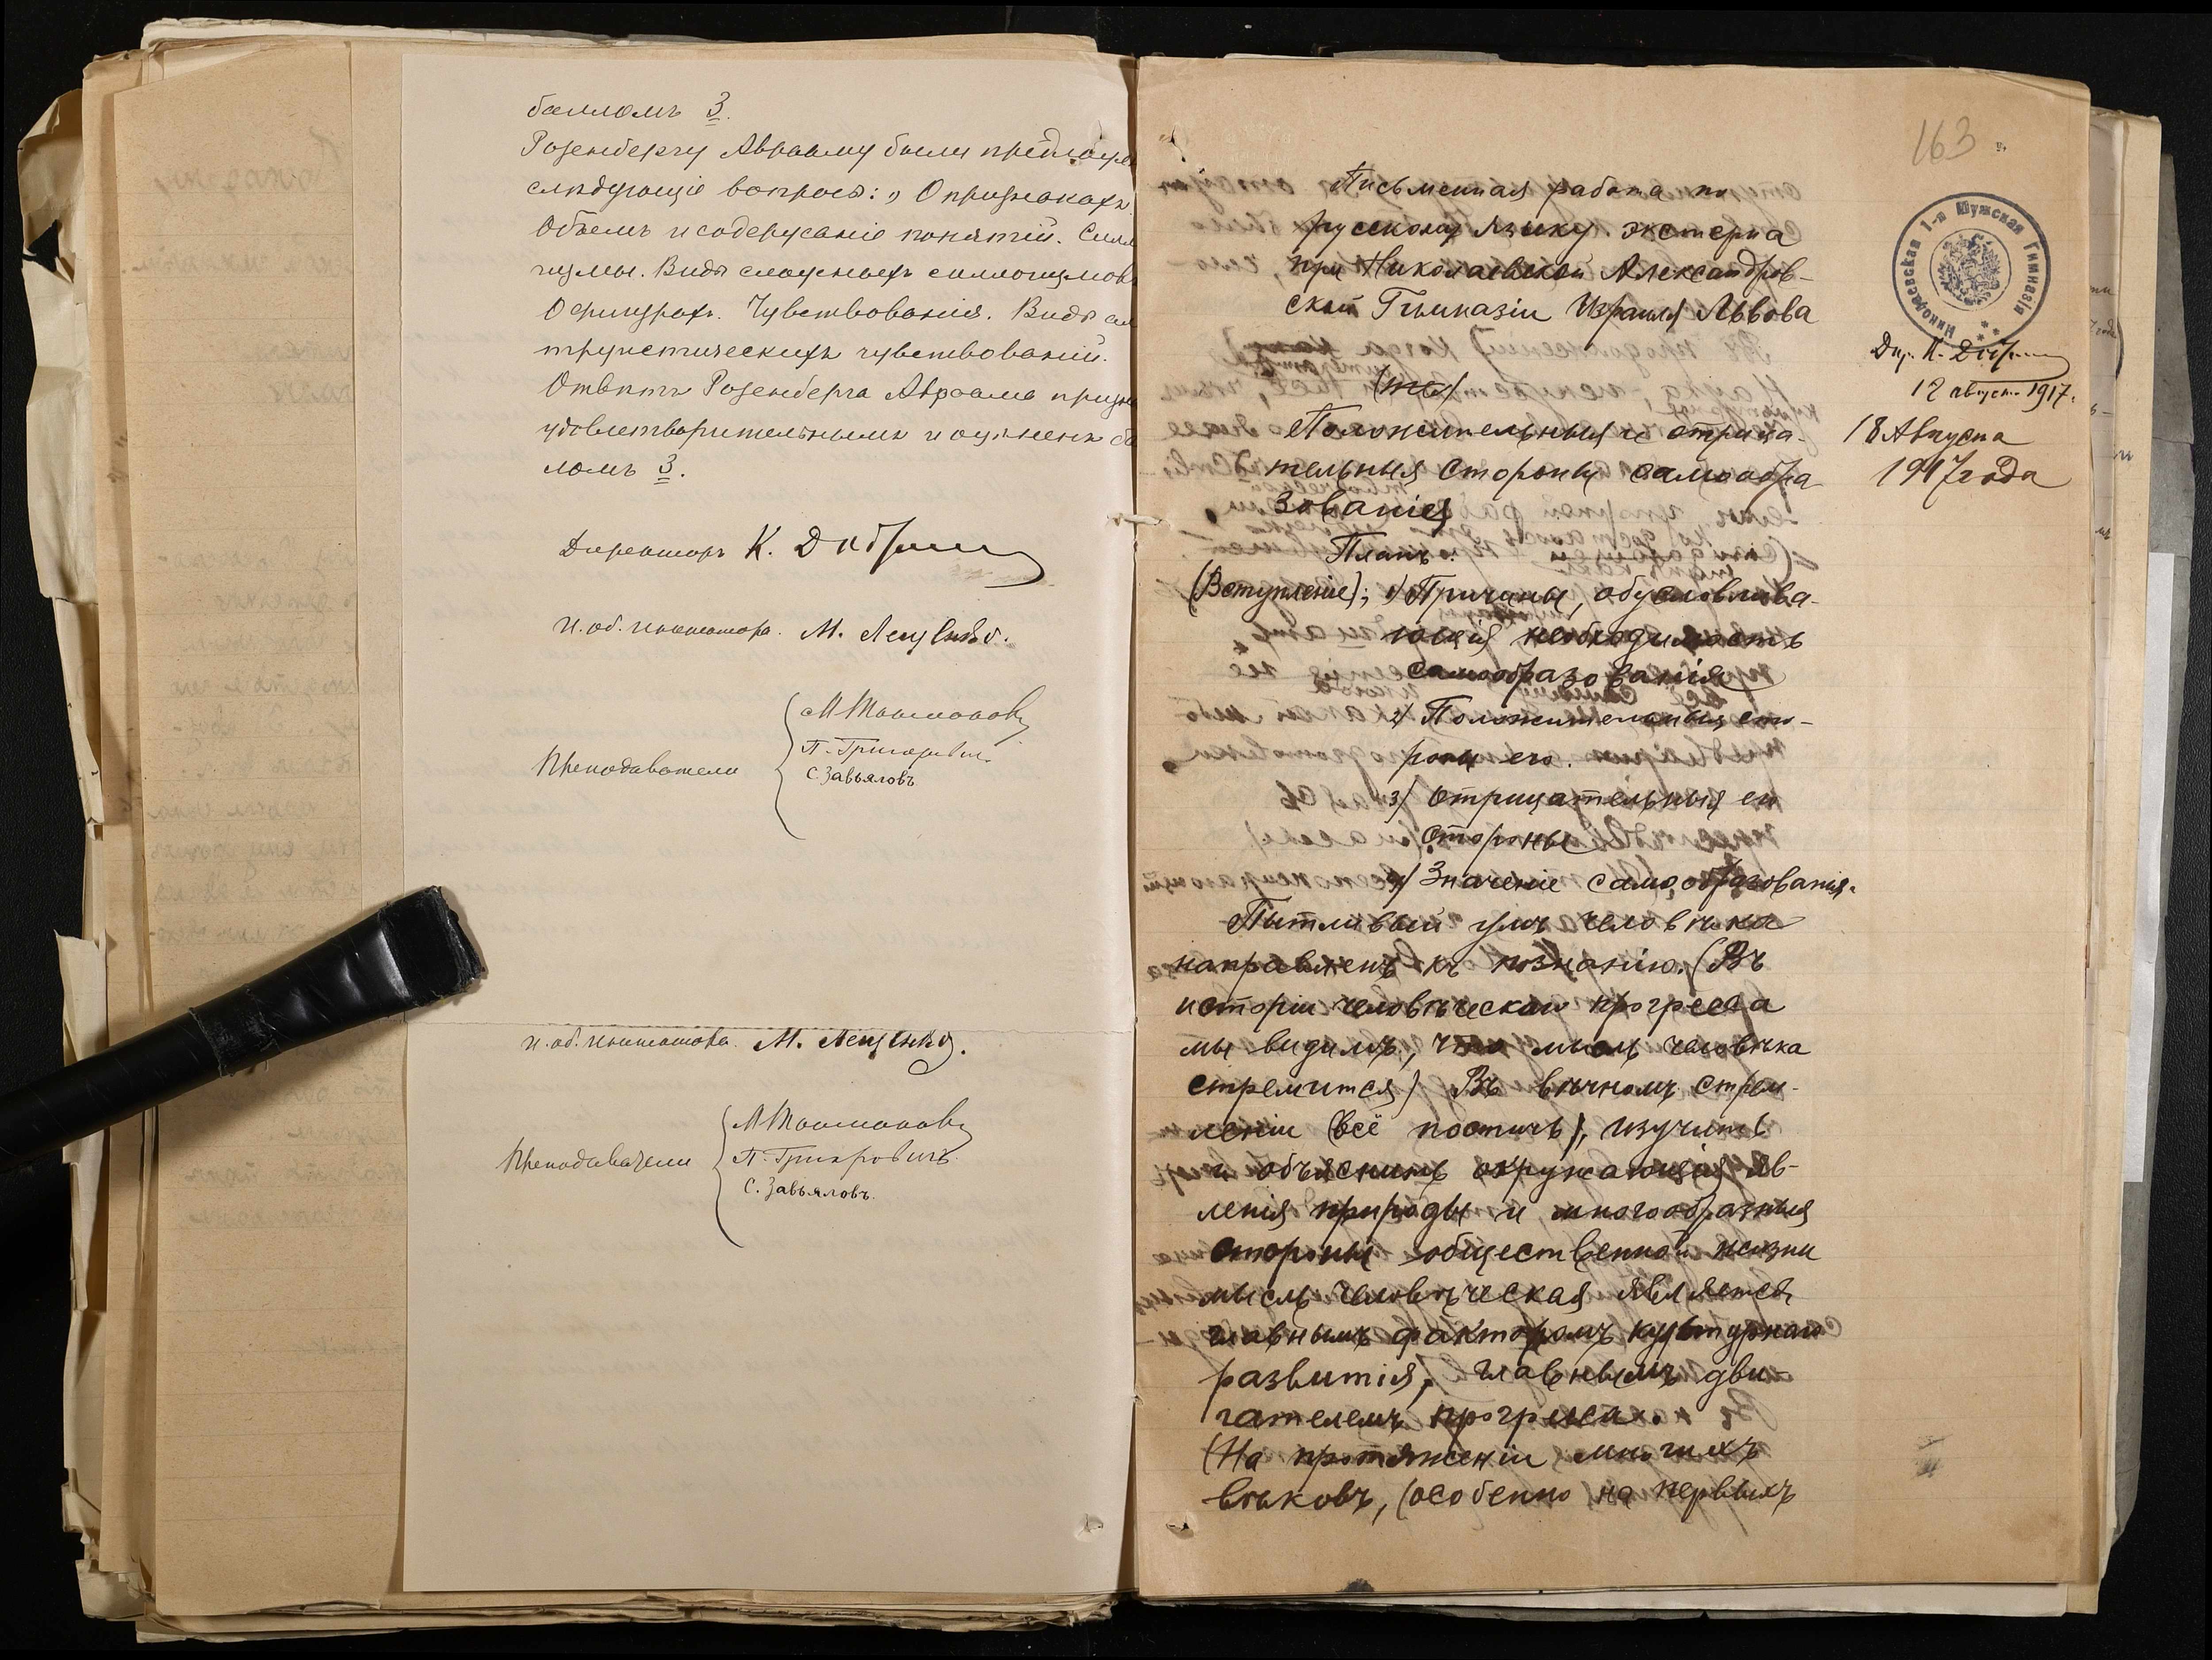 балломъ 3.
Розенбергу Аврааму были предложе
слѣдующіе вопросы: 1) О признакахъ.
Объемъ и содержаніе понятій. Силл
гизмы. Виды сложныхъ силлогизмовъ
О фигурахъ. Чувствованія. Виды ал
труистическихъ чувствованій.
Отвѣтъ Розенберга Авраама призна
удовлетворительнымъ и оцѣненъ ба
ломъ 3.
Директоръ К.
И. об. инспектора. М. Лещенко.
Преподаватели
П. Григоровичъ
С. Завьяловъ
и. об. инспектора. М. Лещенко.
Преподаватели
П. Григоровичъ.
С. Завьяловъ.
163
Письменная работа по
русскому языку экстерна
при Николаевской Александров-
ской Гимназіи Израиля Львова
Николаевская 1-я Мужская Гимназія
Дир. К.
12 август. 1917.
18 Августа
1917 года
Положительныя и отрица-
тельныя стороны самообра-
зованія
Планъ:
(Вступленіе); 1) Причины, обусловлива-
ющія необходимость
самообразованія
2) Положительныя сто-
роны его.
3) Отрицательныя его
стороны
4) Значеніе самообразованія.
Пытливый умъ человѣка
направленъ къ познанію. (Въ
исторіи человѣческаго прогресса
мы видимъ, что мысль человѣка
стремится) Въ вѣчномъ стрем-
леніи (всё постичь), изучить
и объяснить окружающія яв-
ленія природы и многообразныя
стороны общественной жизни
мысль человѣческая является
главнымъ факторомъ культурнаго
развитія, главнымъ дви-
гателемъ прогресса.
(На протяженіи многихъ
вѣковъ, (особенно на первыхъ